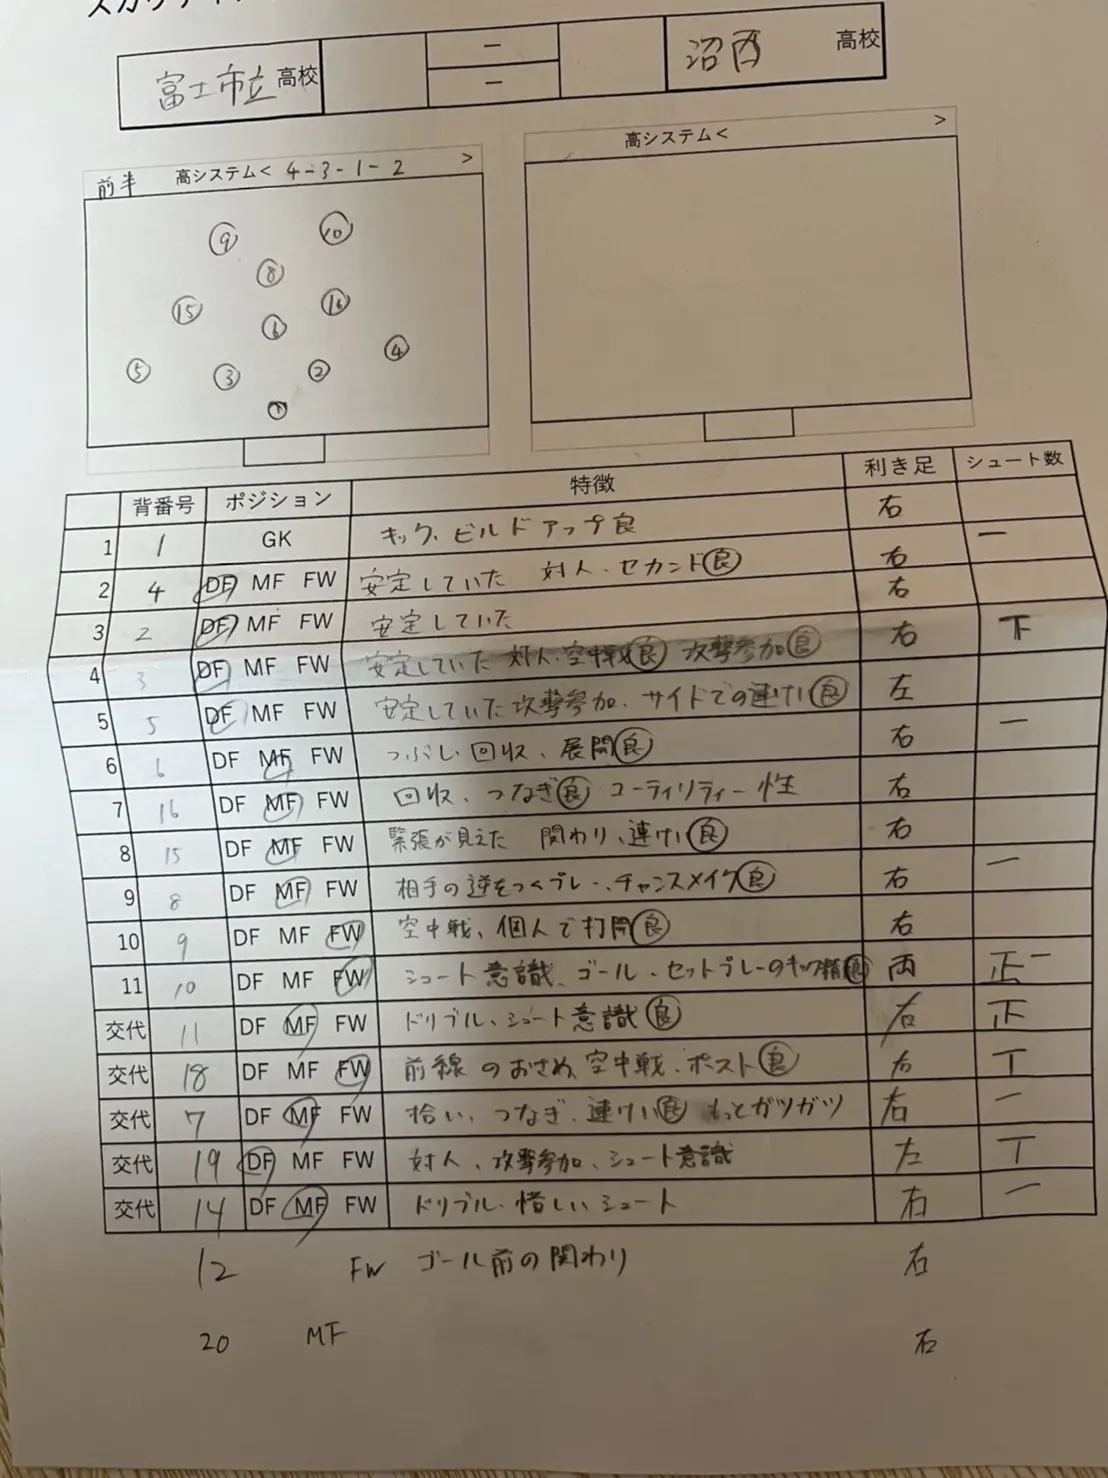 富士市立 高校 － － 沼西 高校
前半 高システム< 4-3-1-2 >
高システム< >
9 10
8
15 16
6
5 3 2 4
1
背番号 ポジション 特徴 利き足 シュート数
1 1 GK キック、ビルドアップ良 右
2 4 DF MF FW 安定していた 対人・セカンド良 右 一
3 2 DF MF FW 安定していた 右
4 3 DF MF FW 安定していた 対人・空中戦良 攻撃参加良 右 下
5 5 DF MF FW 安定していた 攻撃参加、サイドでの連けい良 左
6 6 DF MF FW つぶし回収、展開良 右 一
7 16 DF MF FW 回収、つなぎ良 ユーティリティー性 右
8 15 DF MF FW 緊張が見えた 関わり、連けい良 右
9 8 DF MF FW 相手の逆をつくプレー、チャンスメイク良 右 一
10 9 DF MF FW 空中戦、個人で打開良 右
11 10 DF MF FW シュート意識、ゴール・セットプレーのキック精良 両 正一
交代 11 DF MF FW ドリブル、シュート意識良 右 正
交代 18 DF MF FW 前線のおさめ、空中戦、ポスト良 右 丅
交代 7 DF MF FW 拾い、つなぎ、連けい良 もっとガツガツ 右 一
交代 19 DF MF FW 対人、攻撃参加、シュート意識 左 丅
交代 14 DF MF FW ドリブル、惜しいシュート 右 一
12 FW ゴール前の関わり 右
20 MF 右